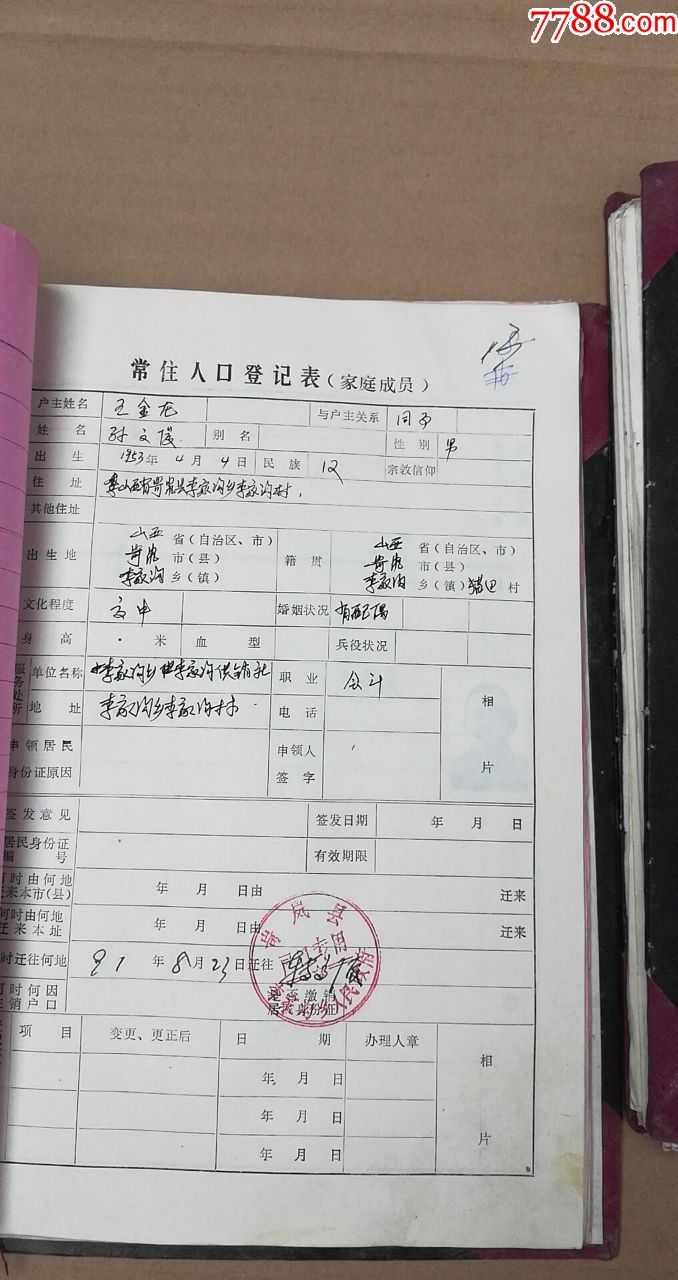 7788.com
常住人口登记表（家庭成员）
户主姓名 王金龙 与户主关系
姓名 孙文俊 别名 性别 男
出生 1953年4月4日 民族 汉 宗教信仰
住址 山西省岢岚县李家沟乡李家沟村
其他住址
出生地 山西省（自治区、市） 籍贯 山西省（自治区、市）
岢岚市（县） 岢岚市（县）
李家沟乡（镇） 李家沟乡（镇） 村
文化程度 高中 婚姻状况 有配偶
身高 · 米 血型 兵役状况
服务处所 单位名称 李家沟供销社 职业 会计 相片
地址 李家沟乡李家沟村 电话
申领居民身份证原因 申领人签字
签发意见 签发日期 年 月 日
居民身份证编号 有效期限
何时由何地迁来本市(县) 年 月 日由 迁来
何时由何地迁来本址 年 月 日由 迁来
时迁往何地 91年8月23日迁往
何时何因注销户口 是否缴销居民身份证
岢岚县 人民政府
项目 变更、更正后 日期 办理人章 相片
年 月 日
年 月 日
年 月 日